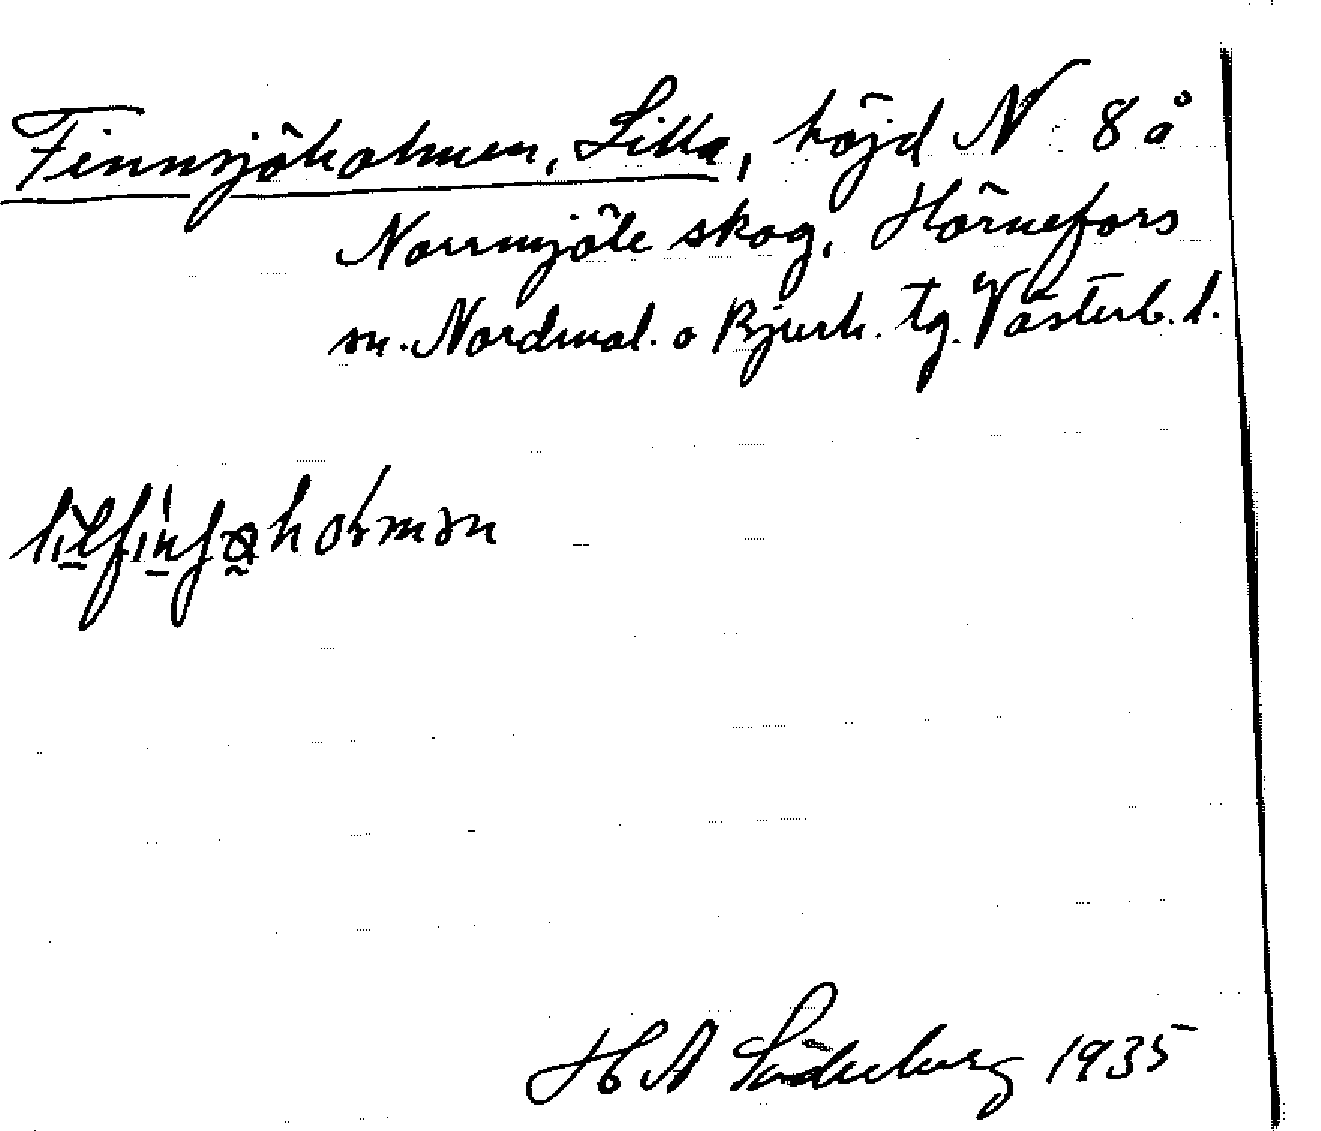 Finnsjöholmen, Lilla, höjd N 8 å
Norrmjöle skog, Hörnefors
sn. Nordmal. o Bjurh. tg. Västerb. l.
H A Söderberg 1935